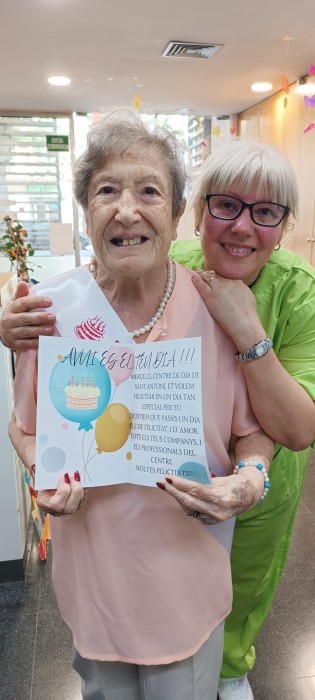 AVUI ES EL TEU DIA !!!
MERCÈ, EL CENTRE DE DIA DE
SANT ANTONI, ET VOLEM
FELICITAR EN UN DIA TAN
ESPECIAL PER TU.
DESITJEM QUE PASSIS UN DIA
PLE DE FELICITAT, I D' AMOR.
TOTS ELS TEUS COMPANYS, I
ELS PROFESSIONALS DEL
CENTRE
MOLTES FELICITATS!!!